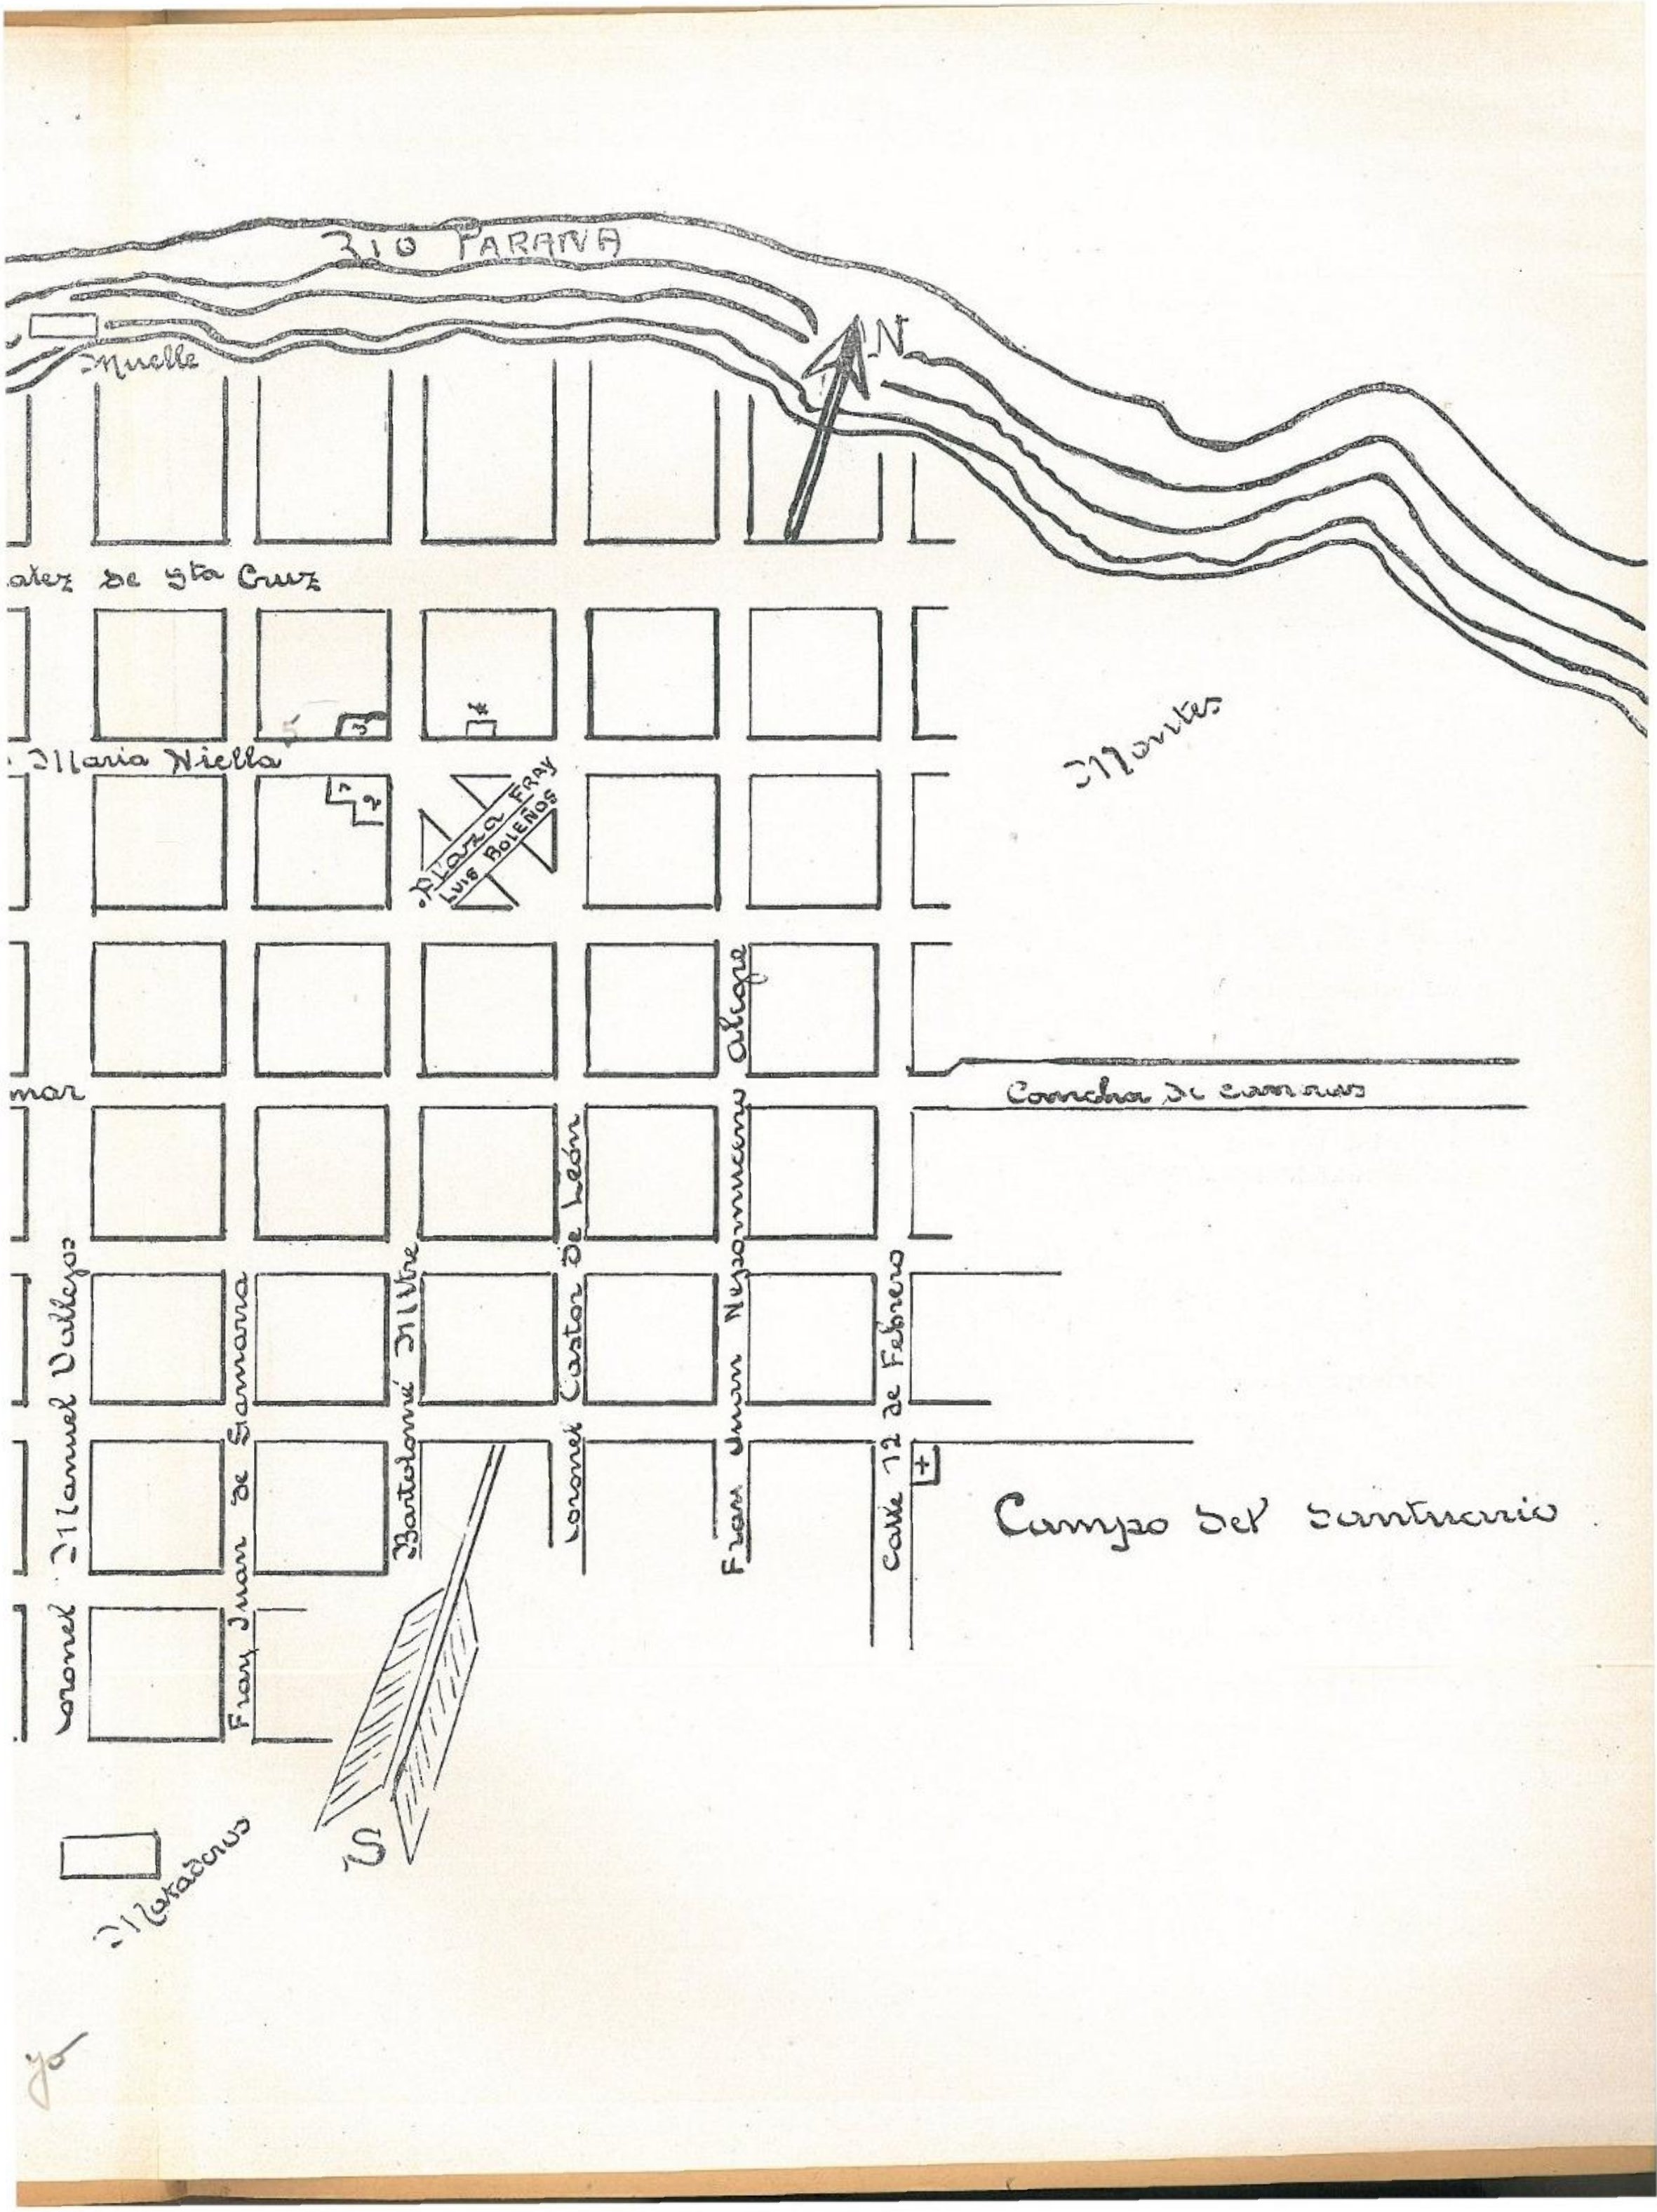 RIO PARANA
N
Muelle
atez de Sta Cruz
Montes
3
*
5
Maria Niella
1
2
PLaza FRAY
LUIS BOLEÑOS
mar
Cancha de carreras
Coronel Manuel Vallejos
Fray Juan de Gamarra
Bartolomé Mitre
Coronel Castor de León
Fray Juan Nepomuceno Alegre
Calle 12 de Febrero
+
Campo del Santuario
S
Mataderos
yo